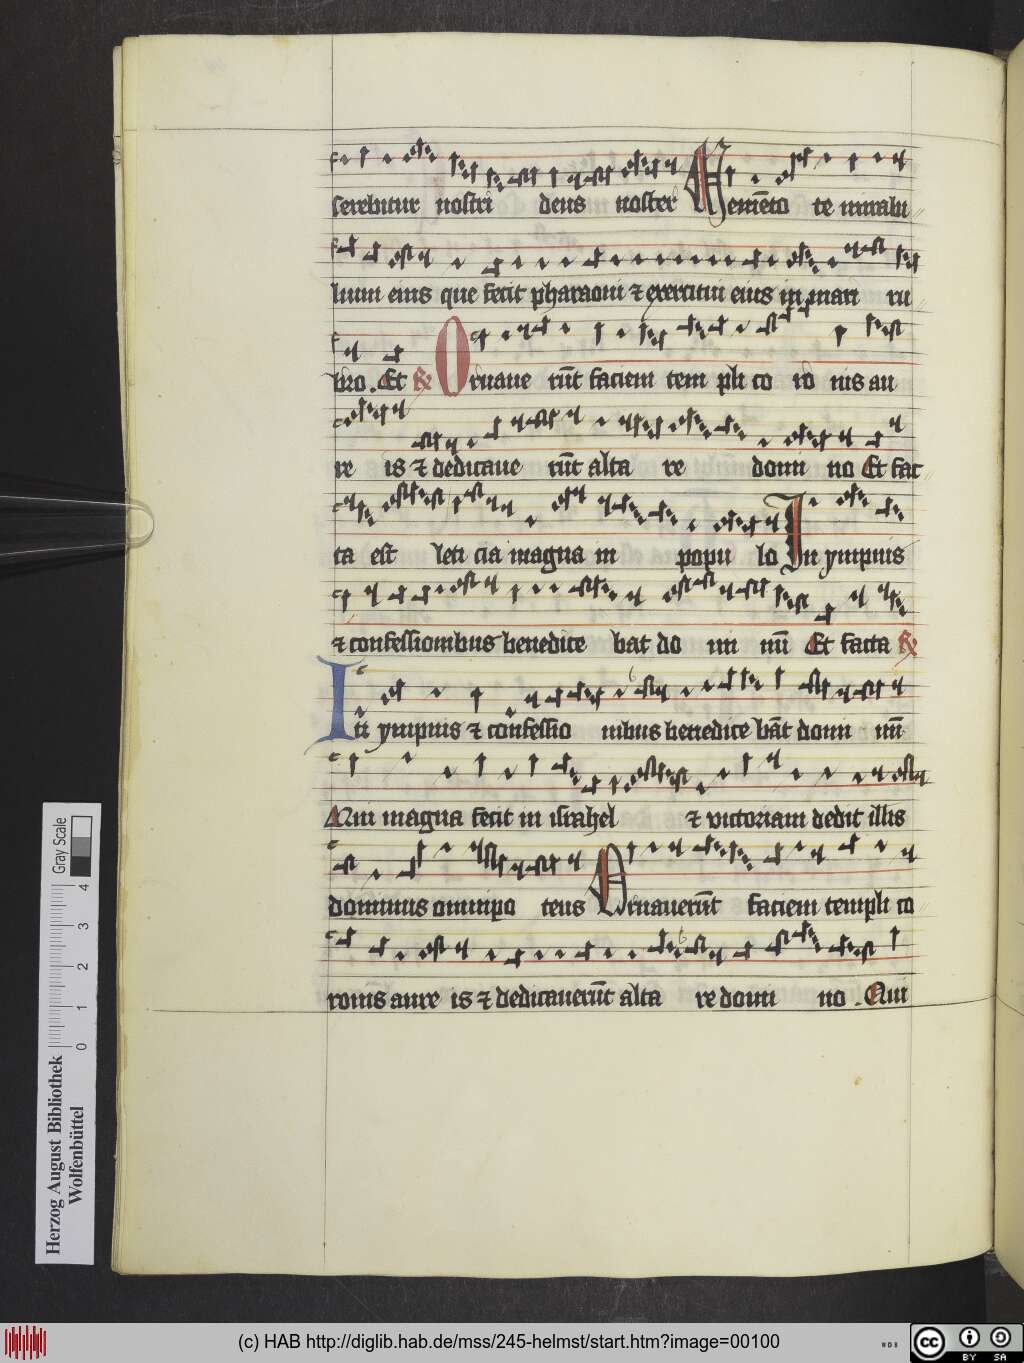 serebitur nostri deus noster Memēto te mirabi
lium eius que fecit pharaoni ⁊ exercitui eius in mari ru
bro . Et ℟ Ornaue rūt faciem tem pli co ro nis au
re is ⁊ dedicaue rūt alta re domi no Et fac
ta est leti cia magna in popu lo In ympnis
⁊ confessionibus benedice bat do mi nū Et facta ℟
In ympnis ⁊ confessio nibus benedice bāt domi nū
Qui magna fecit in israhel ⁊ victoriam dedit illis
dominus omnipo tens Ornauerūt faciem templi co
ronis aure is ⁊ dedicauerūt alta re domi no . Qui
Herzog August Bibliothek
Wolfenbüttel
Gray Scale
0 1 2 3 4
(c) HAB http://diglib.hab.de/mss/245-helmst/start.htm?image=00100
WDB
cc BY SA